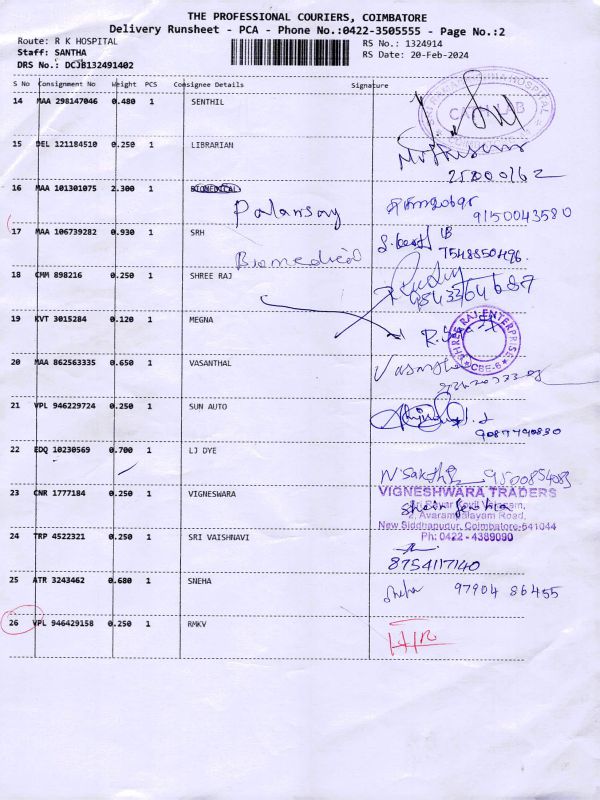 THE PROFESSIONAL COURIERS, COIMBATORE
Delivery Runsheet - PCA - Phone No.:0422-3505555 - Page No.:2
Route: R K HOSPITAL
RS No.: 1324914
Staff: SANTHA
RS Date: 20-Feb-2024
DRS No.: DCJB132491402
S No Consignment No Weight PCS Consignee Details Signature
14 MAA 298147046 0.480 1 SENTHIL
CATH LAB
15 DEL 121184510 0.250 1 LIBRARIAN
16 MAA 101301075 2.300 1 BIOMEDICAL
9150043580
17 MAA 106739282 0.930 1 SRH
7548850496.
Biomedical
18 CMM 898216 0.250 1 SHREE RAJ
19 KVT 3015284 0.120 1 MEGNA
SHREE RAJ ENTERPRISE
CBE-6
20 MAA 862563335 0.650 1 VASANTHAL
21 VPL 946229724 0.250 1 SUN AUTO
9087790830
22 EDQ 10230569 0.700 1 LJ DYE
23 CNR 1777184 0.250 1 VIGNESWARA
VIGNESHWARA TRADERS
2, Avarampalayam Road,
New Siddhapudur, Coimbatore-641044
Ph: 0422 - 4389090
24 TRP 4522321 0.250 1 SRI VAISHNAVI
8754117140
25 ATR 3243462 0.680 1 SNEHA
Sneha 97904 86455
26 VPL 946429158 0.250 1 RMKV